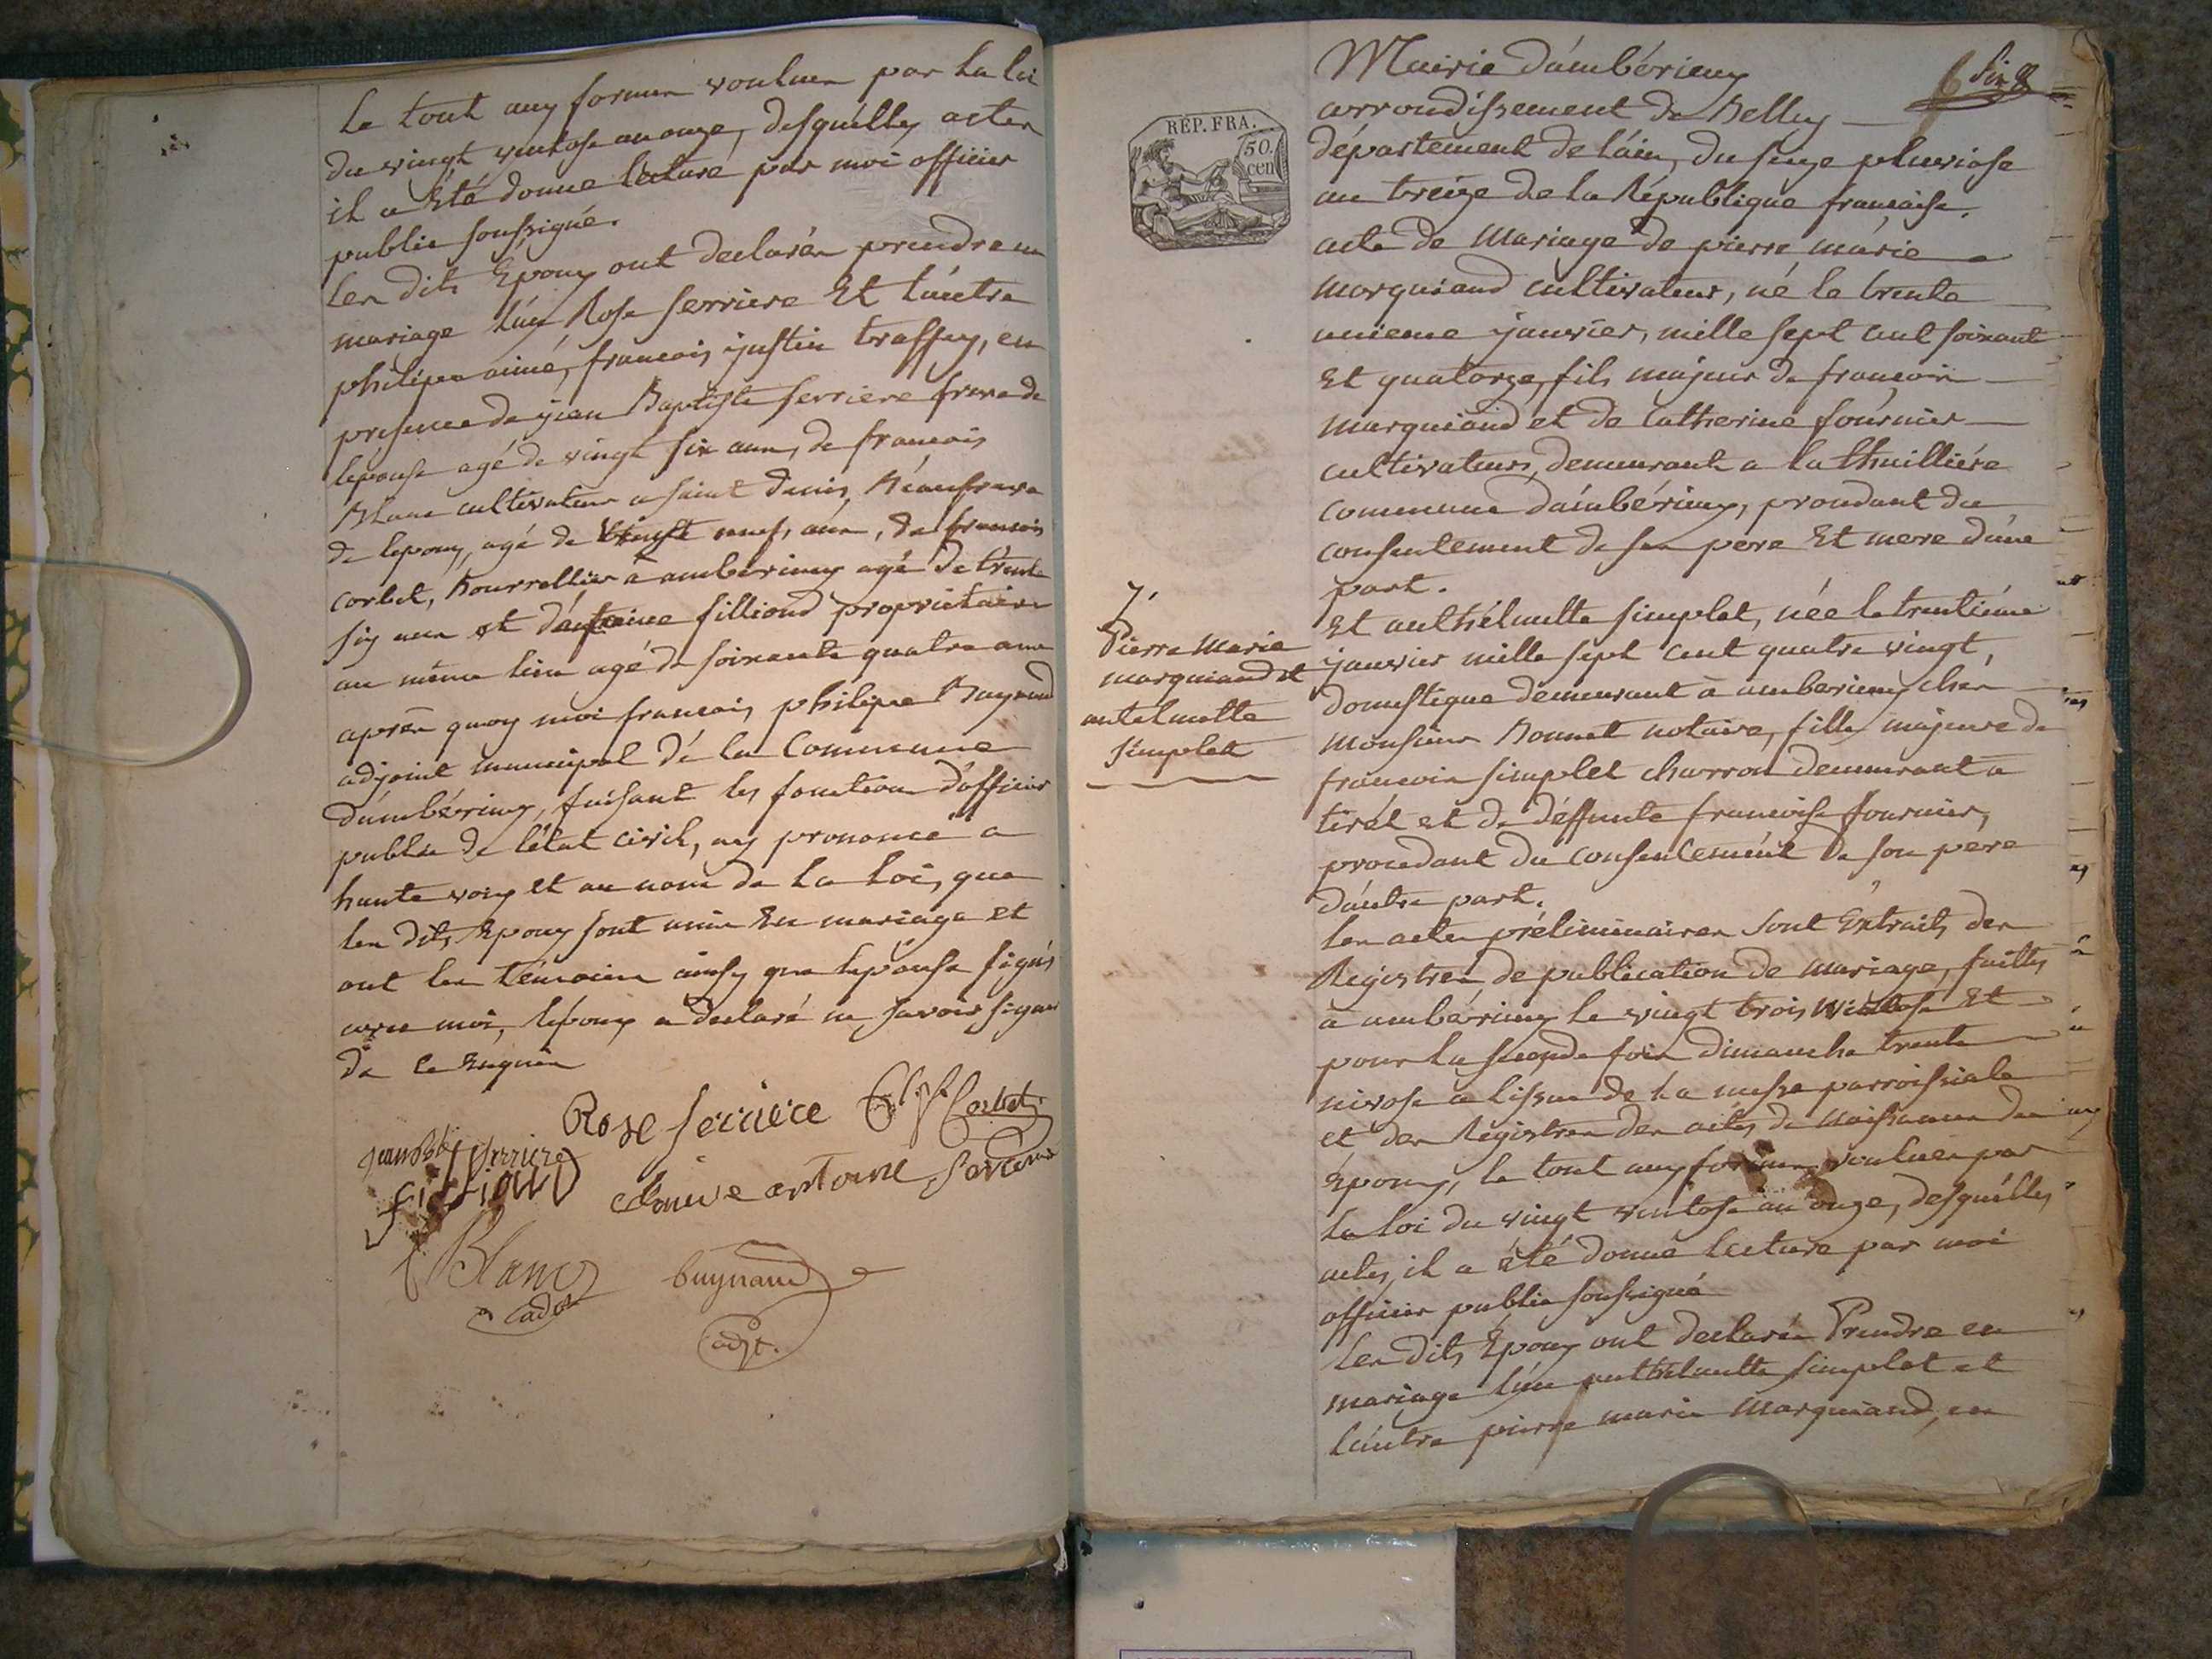 le tout aux formes voulues par la loi
du vingt ventose an onze, desquelles actes
il a été donné lecture par moi officier
public soussigné.
les dits Epoux ont declarés prendre en
mariage l'un Rose ferriere Et l'autre
philipe aimé, francois justin traffey, en
presence de jean Baptiste ferriere frere de
lepouse agé de vingt six ans, de francois
Blanc cultivateur a saint denis, Beaufrere
de lepoux, agé de neuf ans, de francois
corbet, Bourrellier à amberieux agé de trente
six ans et d'antoine filliond proprietaire
au même lieu agé de soixante quatre ans
après quoy moi francois philipe Buynand
adjoint municipal dé la Commune
d'ambérieux, faisant les fonctions d'officier
public de l'état civil, ay prononcé a
haute voix et au nom de la loi, que
les dits Epoux sont unis En mariage et
ont les témoins ainsy que l'epouse signés
avec moi, lepoux a declaré ne savoir signer
de ce Enquis
Rose ferriere Corbet
jean Bte ferriere
filliond antoine
Blanc buynand
cadet
adjt.
Mairie d'ambérieux
arrondissement de Belley
Six
département de l'ain, du seize pluviose
an treize de la République française.
REP. FRA.
50.
cen
acte de Mariage de pierre marie
marguiand cultivateur, né le trente
unieme janvier, mille sept cent soixante
Et quatorze, fils majeur de francois
marguiand et de Catherine fournier
cultivateurs, demeurant a la thuilliére
commune d'ambérieux, procedant du
consentement de ses pere Et mere d'une
part.
7.
Pierre Marie
marguiand et
antelmette
simplet
Et anthélmette simplet, née le trentiéme
janvier mille sept cent quatre vingt,
domestique demeurant à amberieux chés
monsieur Bonnet notaire, fille majeure de
francois simplet charron demeurant a
tiret et de déffunte francoise fournier,
procedant du consentement de son pere
d'autre part.
les actes préliminaires sont Extraits des
Registres de publication de mariage, faittes
à ambérieux le vingt trois nivose Et
pour la seconde fois dimanche trente
nivose a lissue de la messe parroissiale
et des Registres des actes de naissances des
Epoux, le tout aux formes voulues par
la loi du vingt ventose an onze, desquelles
actes, il a été donné lecture par moi
officier public soussigné
les dits Epoux ont declarés Prendre en
mariage l'un anthelmette simplet et
l'autre pierre marie marguiand, en